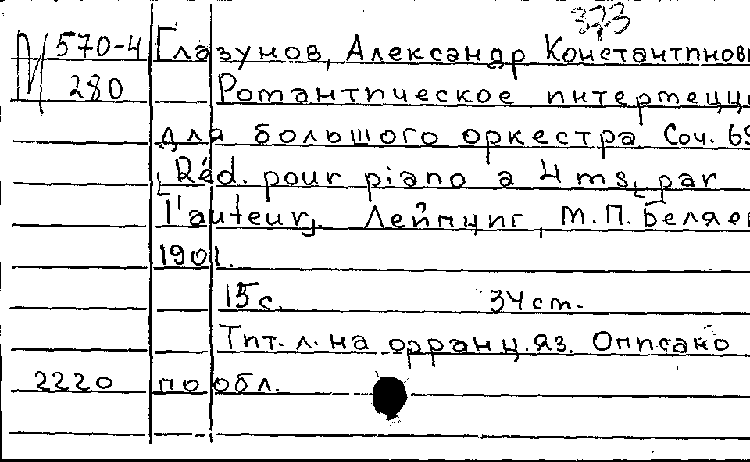 373
М 570-4 Глазунов, Александр Константинови
280 Романтическое интермецц
для большого оркестра Соч. 69
[Réd. pour piano a 4 ms, par
l'auteur]. Лейпциг, М.П. Беляев
1901.
15 с. 34 cm.
Тит. л. на франц. яз. Описано
2220 по обл.